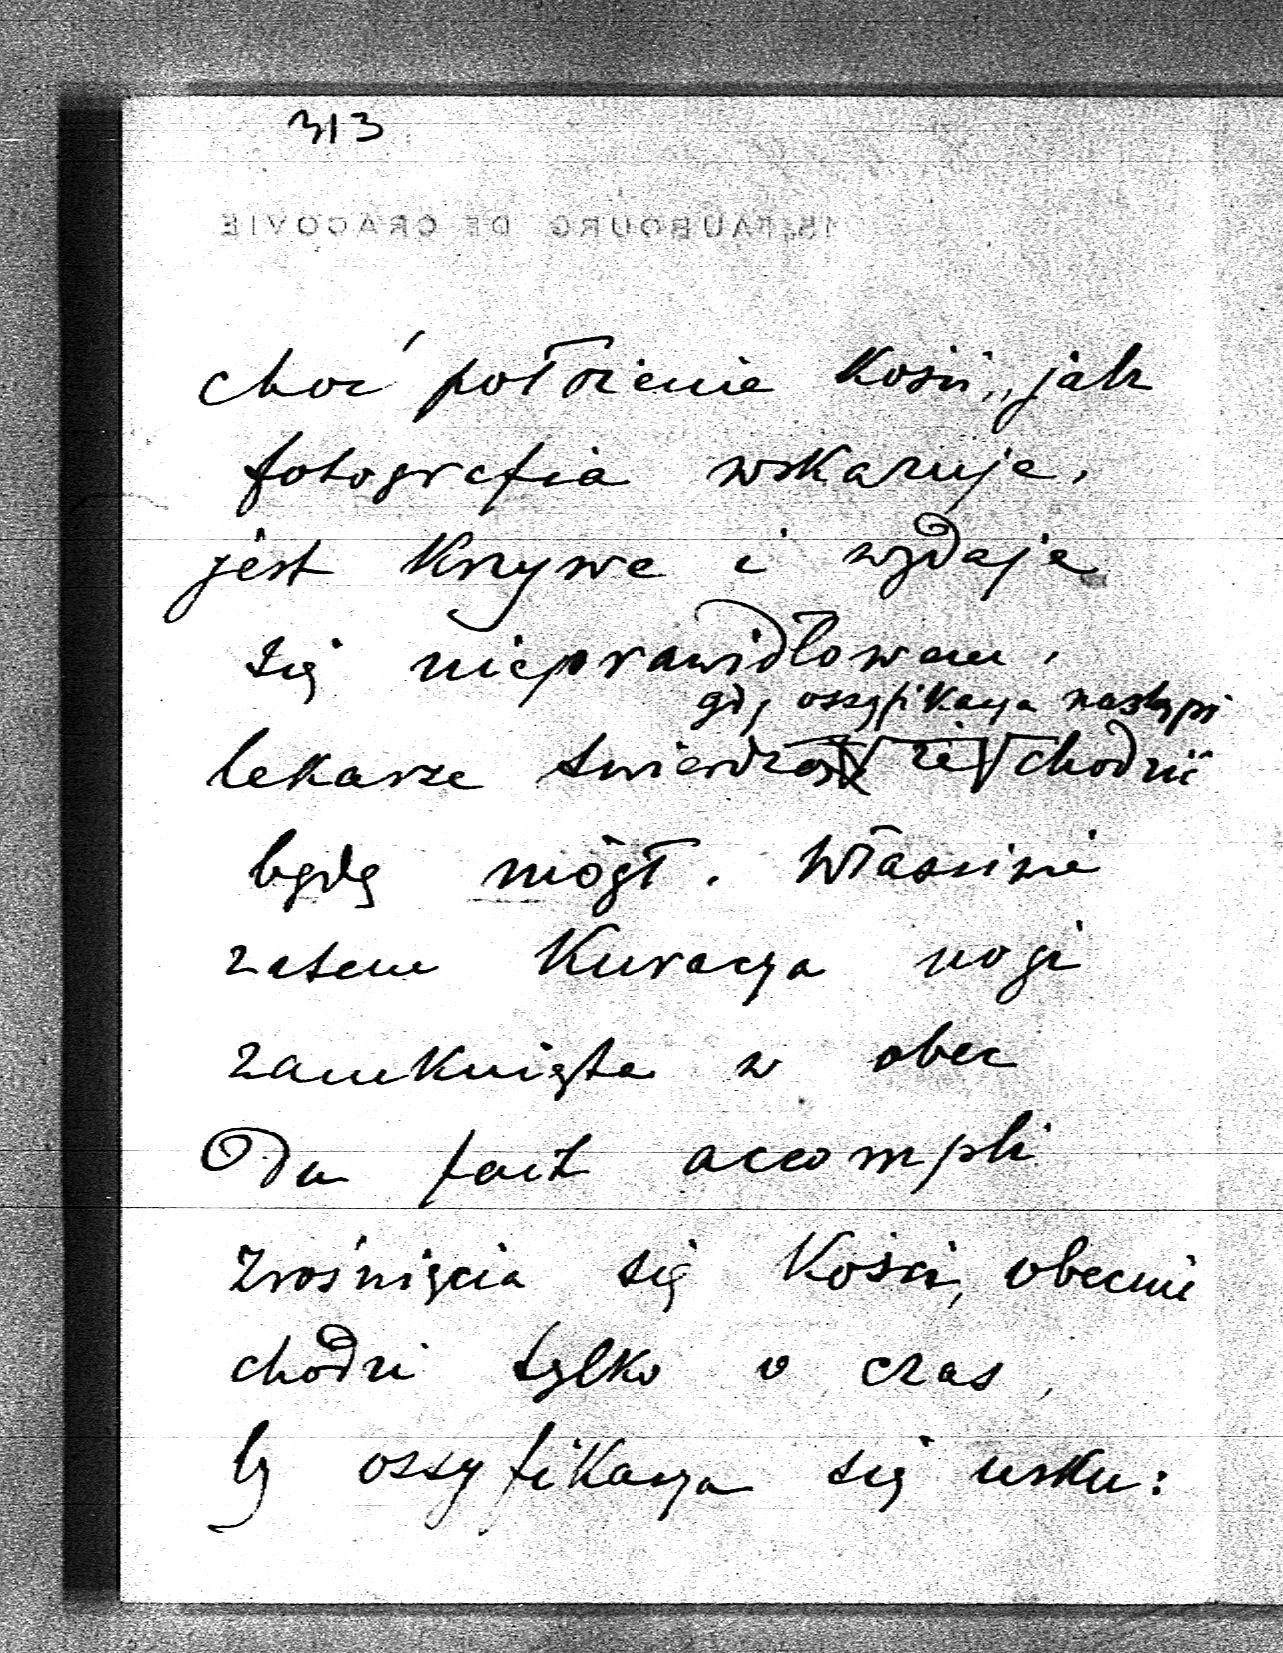 313
15, FAUBOURG DE CRACOVIE
choć położenie kości, jak
fotografia wskazuje,
jest krzywe i wydaje
się nieprawidłowem,
gdy ossyfikacya nastąpi
lekarze twierdzą że chodzić
będę mógł. Właściwie
zatem kuracya nogi
zamknięta w obec
du fait accompli
zrośnięcia się kości, obecnie
chodzi tylko o czas,
by ossyfikacya się usku: